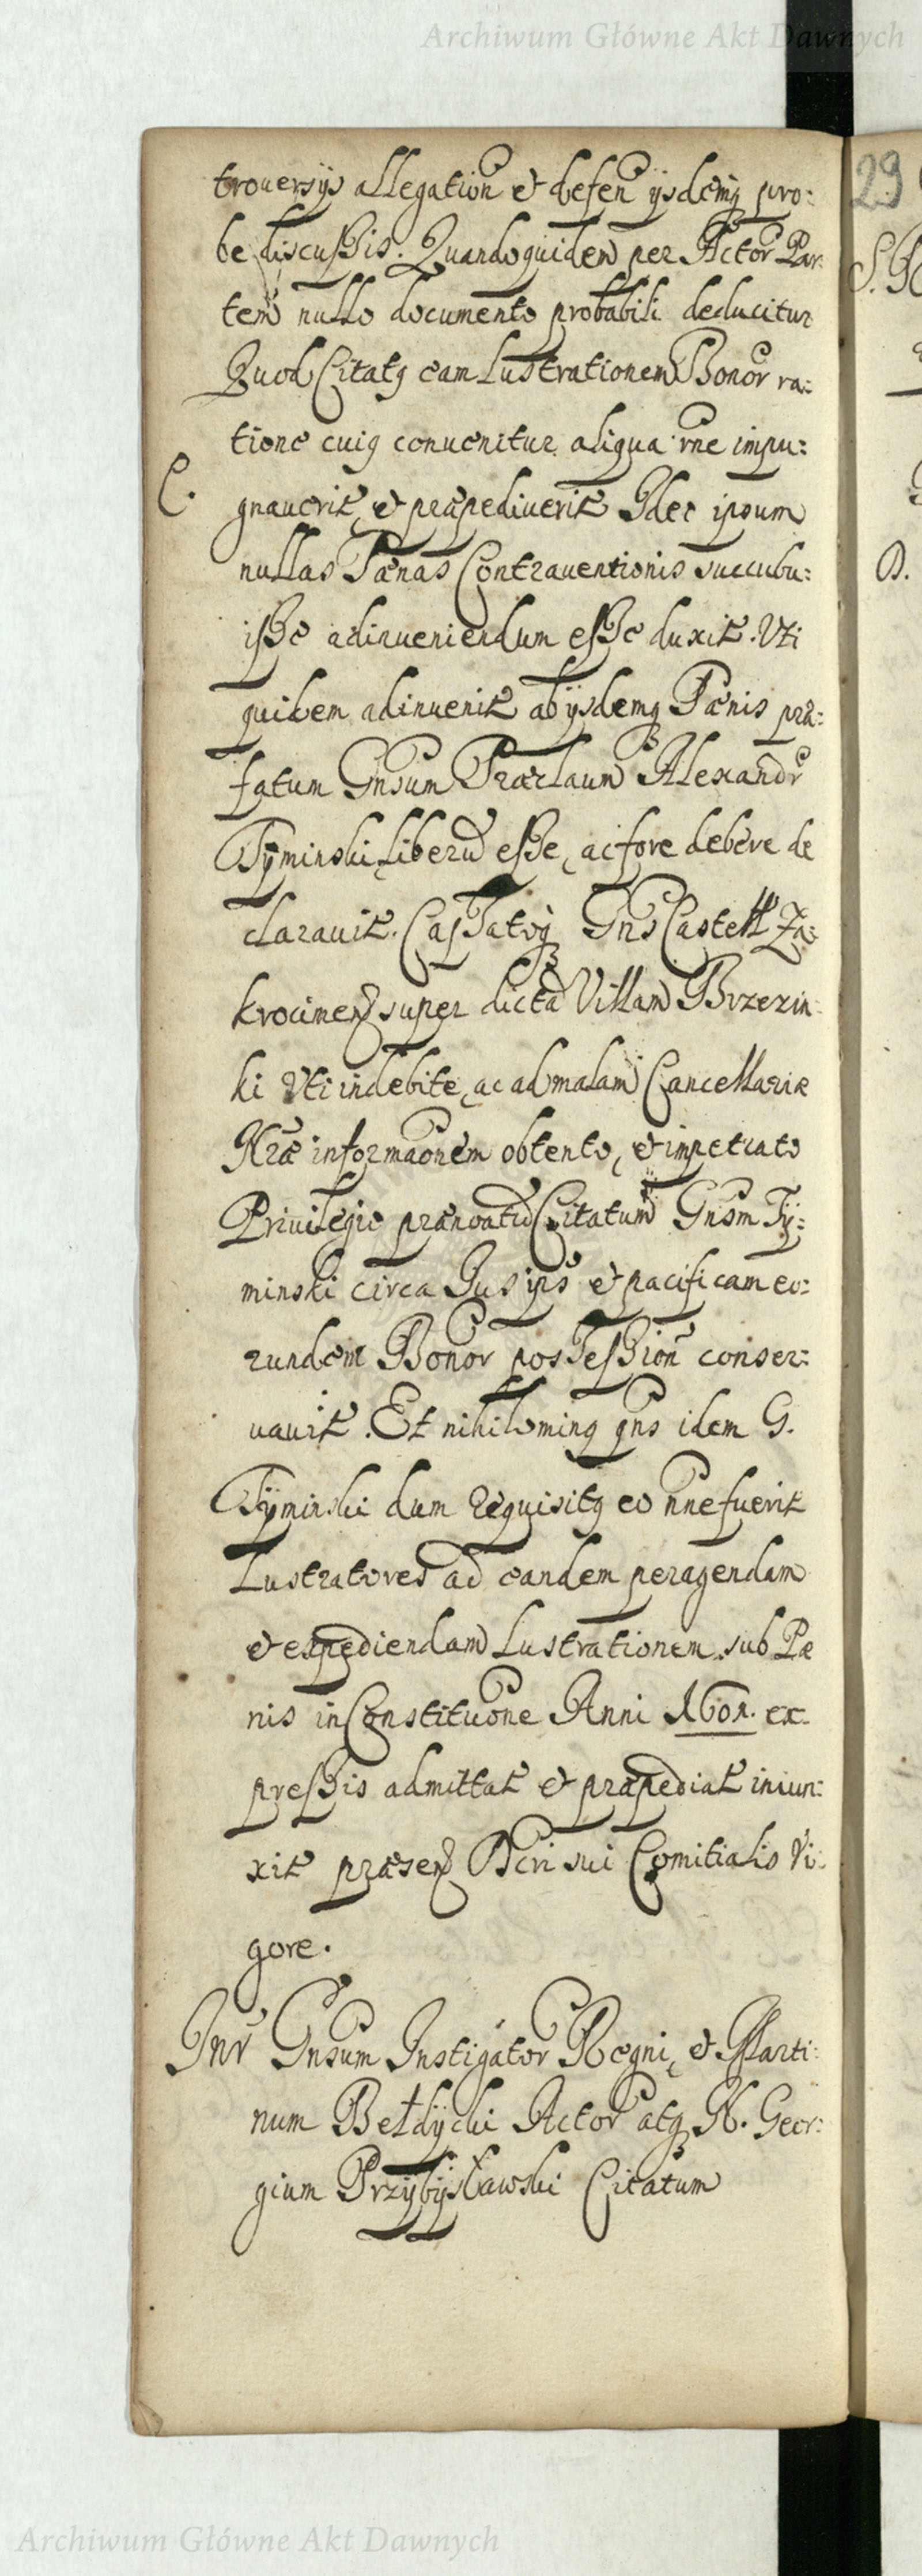 Archiwum Główne Akt Dawnych
trouersijs allegation et defen ijsdemq pro:
be discussis. Quandoquidem per Actor Par
tem nullo documento probabili deducitur
Quod Citatq eam Lustrationem Bonor ra:
tione cuiq conuenitur aliqua rne impu:
C. gnauerit, et præpediuerit Ideo ipsum
nullas Pænas Contrauentionis succubu:
isse adinueniendum esse duxit. Vti
quidem adinuenit ab ijsdemq Pænis præ:
fatum Gnsum Alexandr
Tyminski liberu esse, ac fore debere de
clarauit. Cassatoq Gns Castell Za:
krocimen super dicta Villam Brzezin
ki Vti indebite, ac ad malam Cancellariæ
Nræ informaonem obtento, et impetrato
Priuilegio prænoatu Citatum Gnsm Ty:
minski circa Jus ips et pacificam eo:
rundem Bonor possession conser:
uauit. Et nihilominq gns idem G.
Tyminski dum requisitq eo nne fuerit
Lustratores ad eandem peragendam
et expediendam Lustrationem sub Pæ
nis in Constituone Anni 1601. ex
pressis admittat et præpediat iniun:
xit præsen Dcri sui Comitialis Vi:
gore.
Inr Gnsum Instigator Regni, et Marti:
num Bełdycki Actor atq N. Geor:
gium Przybysławski Citatum
29
D.
Archiwum Główne Akt Dawnych